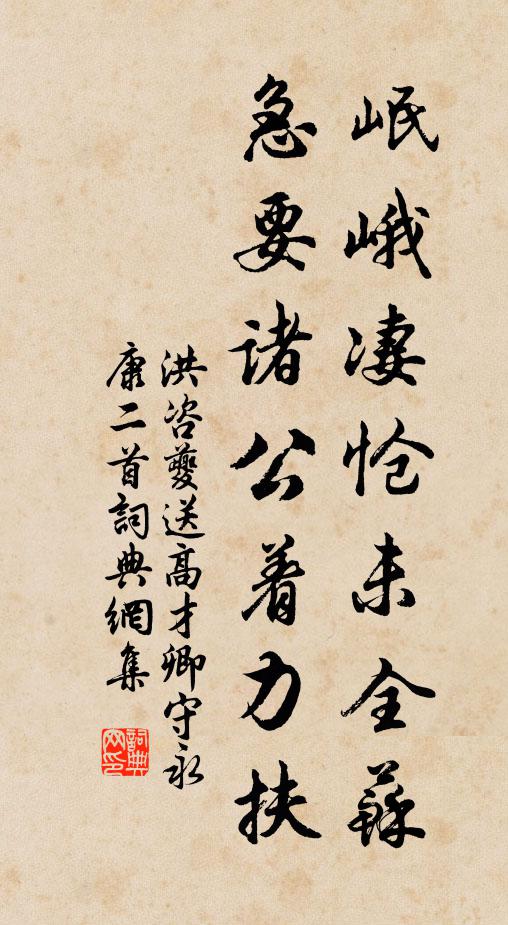 岷峨凄怆未全蘇
急要诸公着力扶
洪咨夔送高才卿守永
康二首詞典網集
詞典
网印